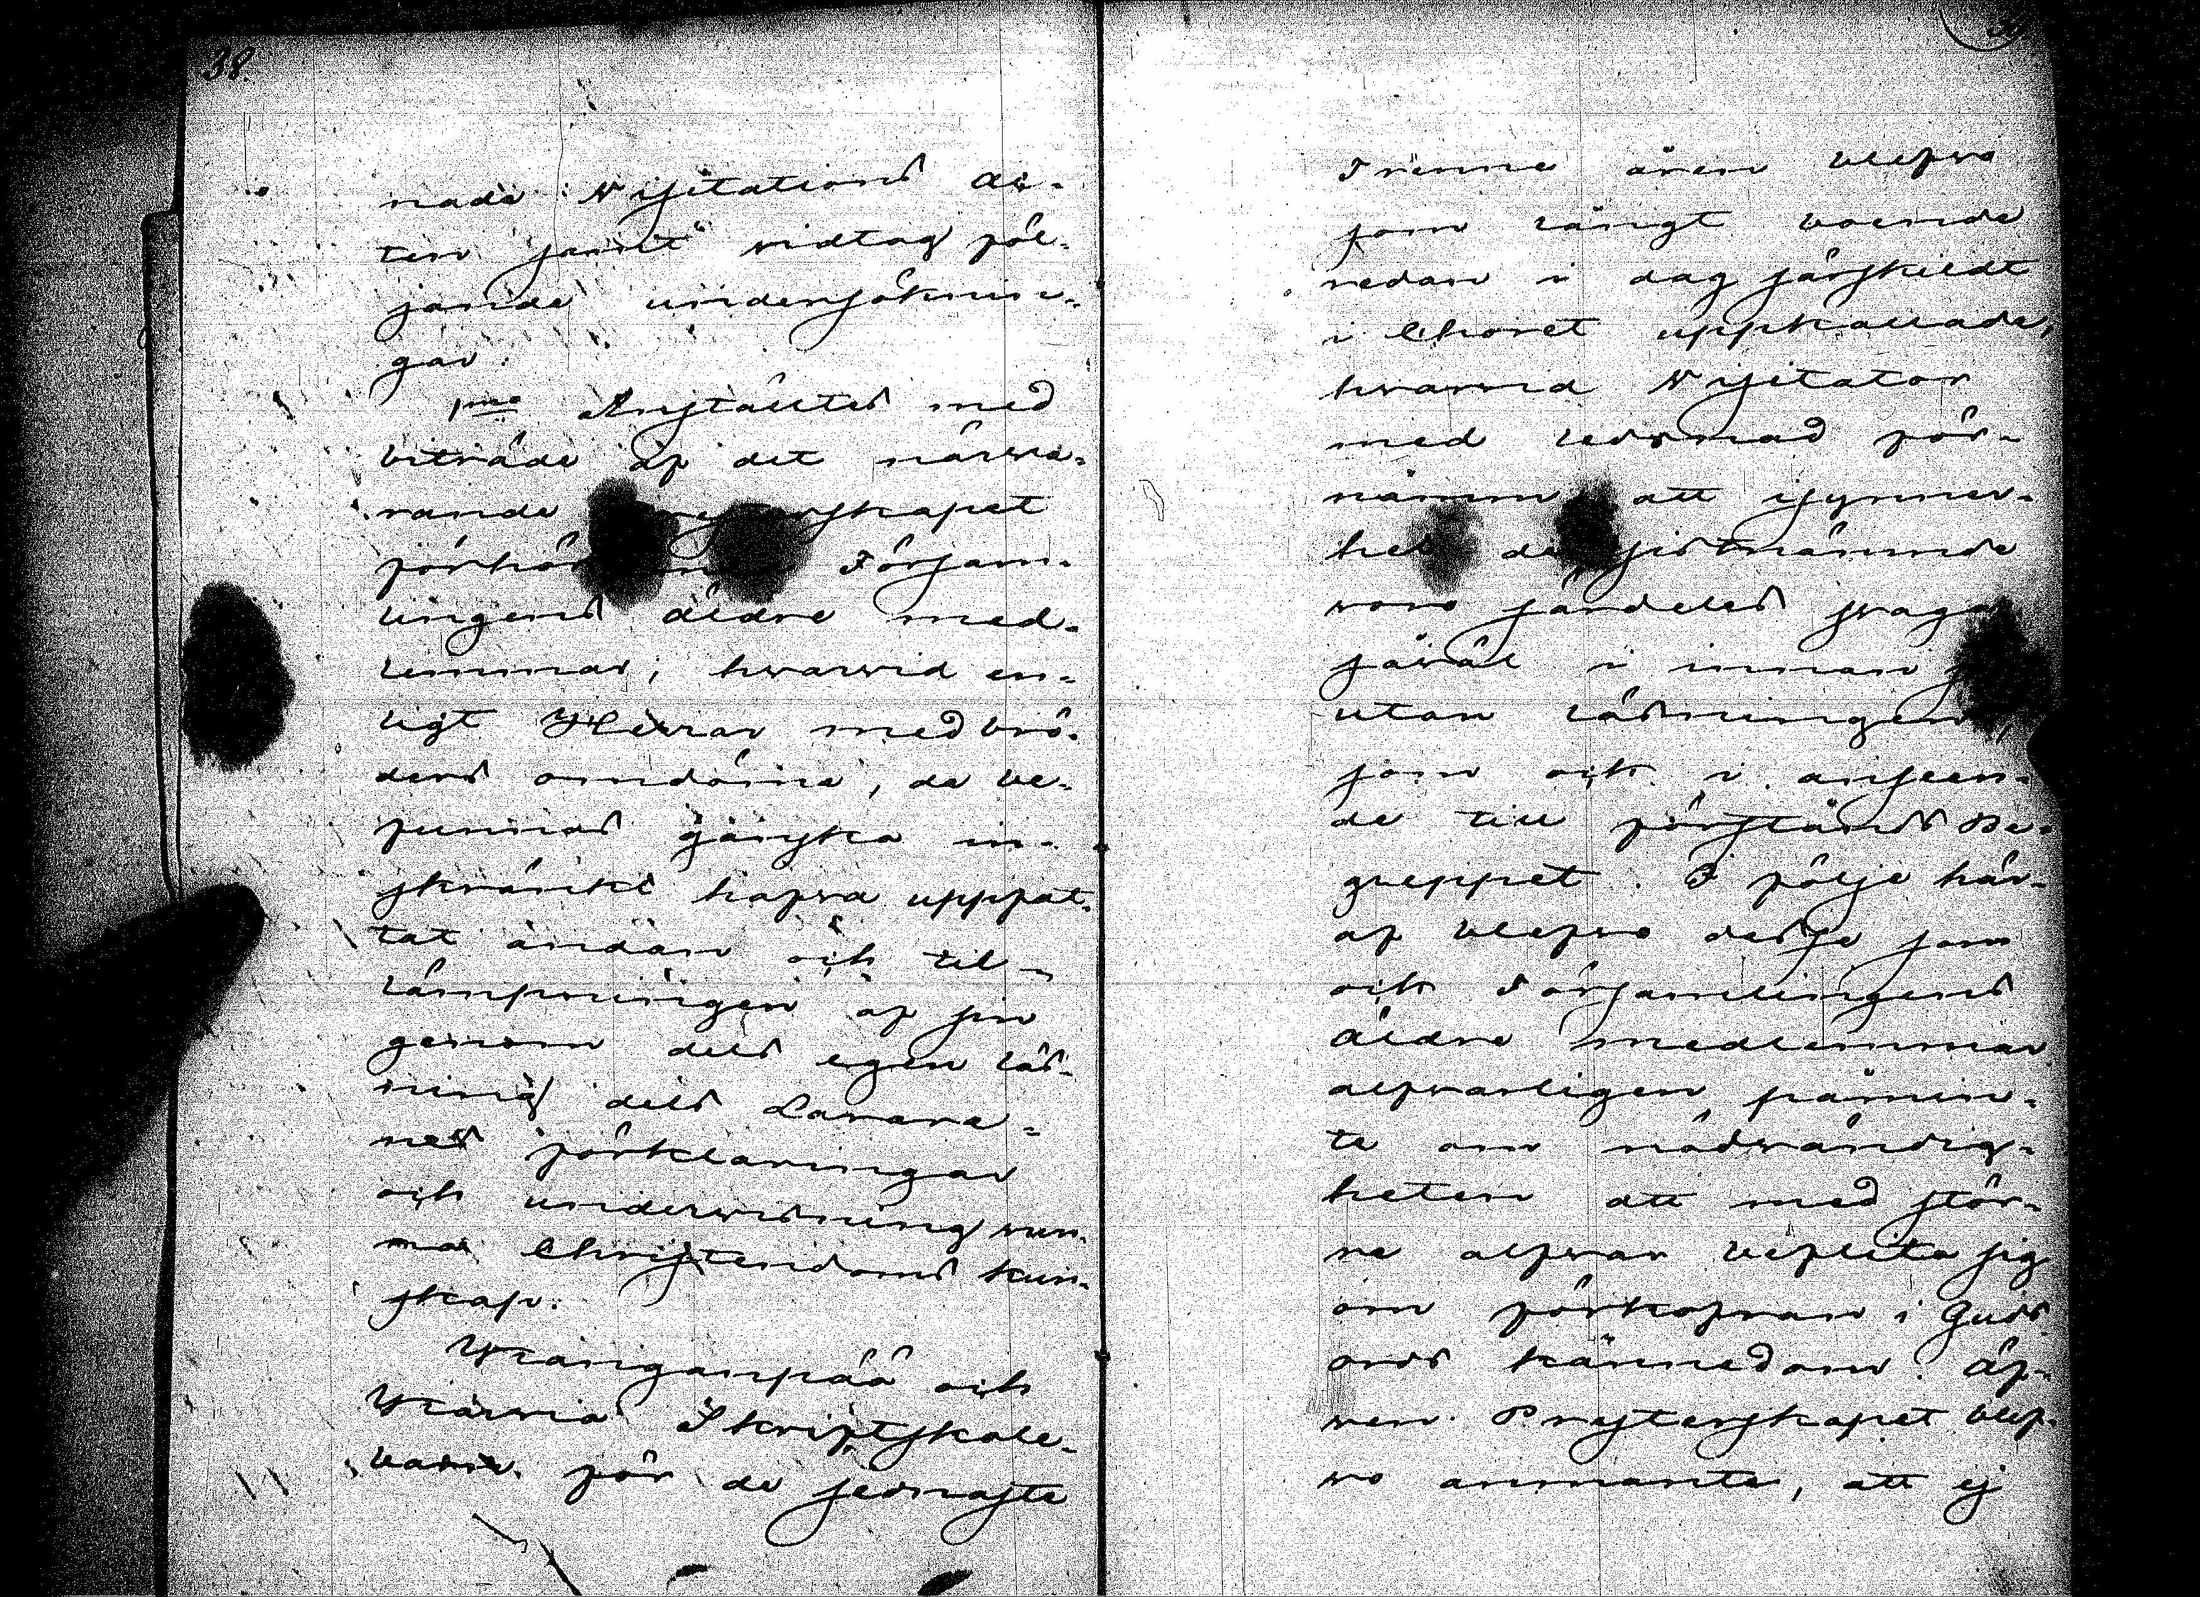 38.
nade Visitations ac-
ten samt vidtog föl-
jande undersöknin-
gar:
1mo Anstältes med
biträde af det närva-
rande Presterskapet
förhör Försam-
lingens äldre med-
lemmar; hwarvid en-
ligt Herrar medbrö-
ders omdöme, de be-
funnos ganska in-
skränkt hafva uppfat-
tat andan och til-
lämpningen af sin
genom dels egen läs-
ning dels Lärare-
nes förklaringar
och underwisning wun-
na Christendoms kun-
skap.
Kanganpää och
Karvia Skriftskole-
barn för de sednaste
Trenne åren blefvo
som långt boende
redan i dag särskildt
i Choret uppkallade,
hwarvid Visitator
med ledsnad för-
nämm att isynner-
het de sistnämnde
voro särdeles svaga
såväl i innan
utan läsningen,
som ock i anseen-
de till förstånds Be-
greppet. I följe här-
af blefvo desse som
ock Församlingens
äldre medlemmar
alfvarligen påmin-
te om nödvändig-
heten att med stör-
re alfvar beflita sig
om förkofran i Guds
ords kännedom. Äf-
ven Presterskapet blef-
vo anmante, att ej